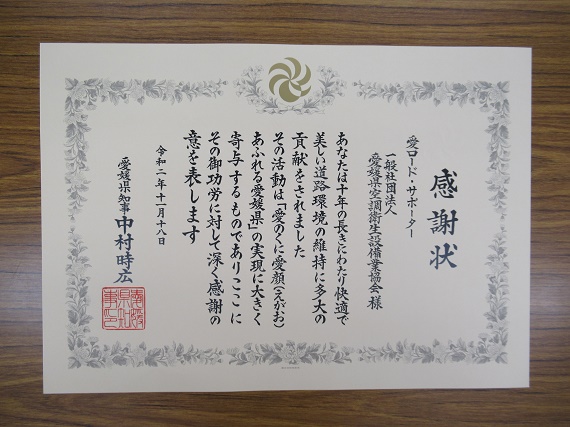 感謝状
愛ロード・サポーター
一般社団法人
愛媛県空調衛生設備業協会様
あなたは十年の長きにわたり快適で
美しい道路環境の維持に多大の
貢献をされました
その活動は「愛のくに愛顔(えがお)
あふれる愛媛県」の実現に大きく
寄与するものでありここに
その御功労に対して深く感謝の
意を表します
令和二年十一月十八日
愛媛県知事 中村時広
愛媛
県知
事印